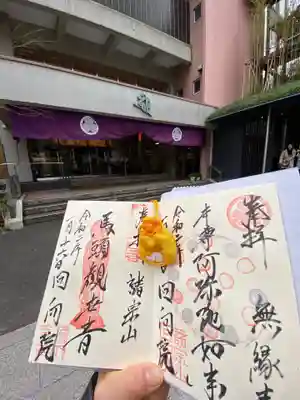 奉拝
無縁寺
本尊阿弥陀如来
令和二年
回向院
奉拝
諸宗山
馬頭観世音
令和二年
月十六日 回向院